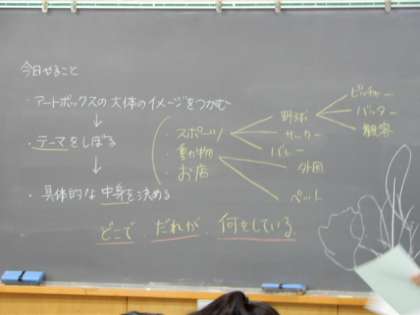 今日やること
・アートボックスの大体のイメージをつかむ
↓
・テーマをしぼる
↓
・具体的な中身を決める
・スポーツ
・動物
・お店
野球
サッカー
バレー
外国
ペット
ピッチャー
バッター
観客
どこで だれが 何をしている